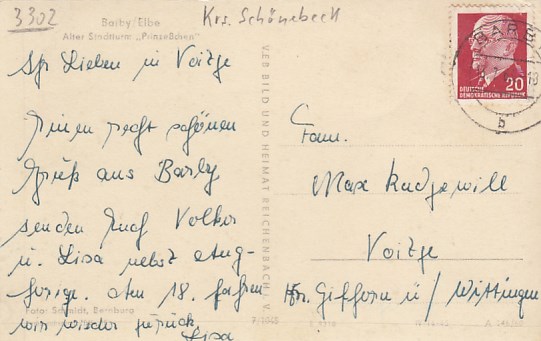 3302
Krs. Schönebeck
Barby/Elbe
Alter Stadtturm „Prinzeßchen"
Ihr Lieben in Voitze
Einen recht schönen
Gruß aus Barby
senden Euch Volker
u. Lisa nebst Ang-
hörige. Am 18. fahren
wir wieder zurück
Lisa
Foto: Schmidt, Bernburg
VEB BILD UND HEIMAT REICHENBACH I. V.
BARBY
b
DEUTSCHE
DEMOKRATISCHE REPUBLIK
20
Fam.
Max Radgewill
Voitze
Krs. Gifhorn ü/ Wittingen